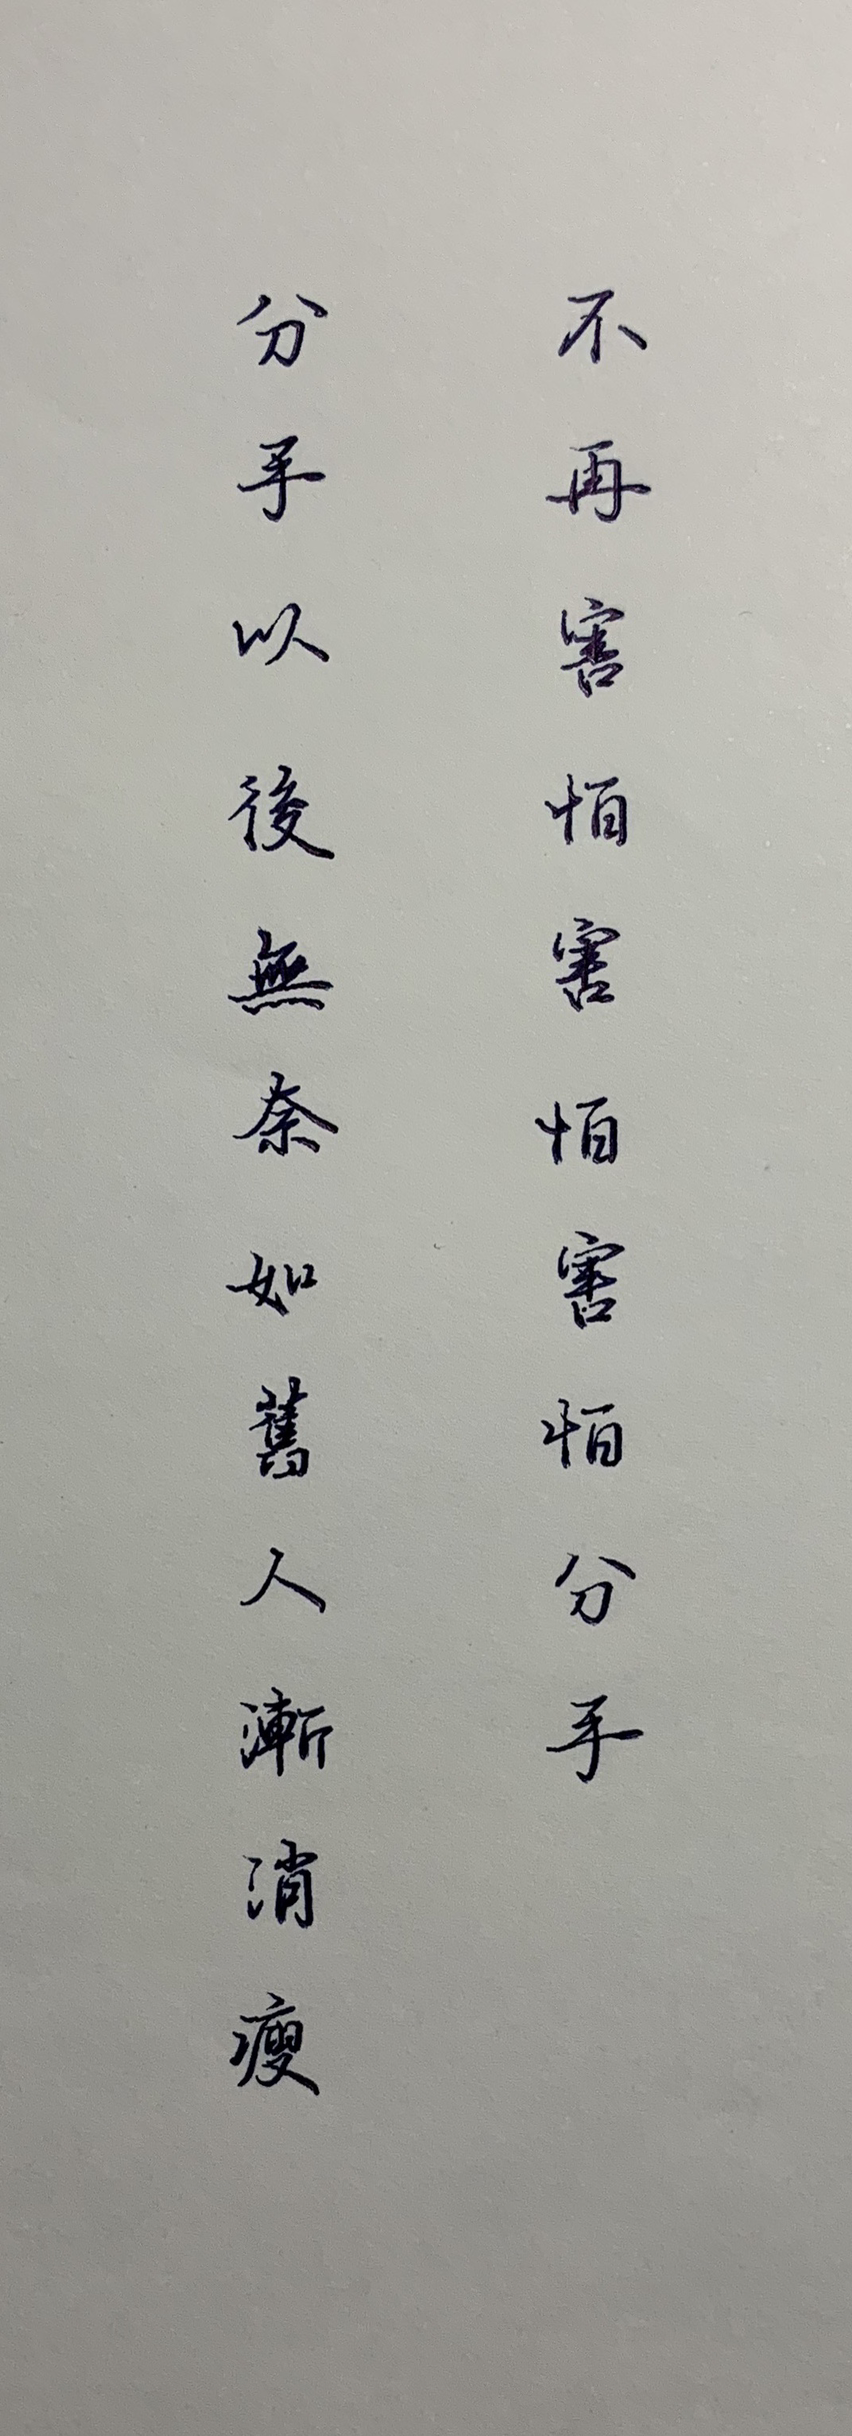 不再害怕害怕害怕分手
分手以後無奈如舊人漸消瘦